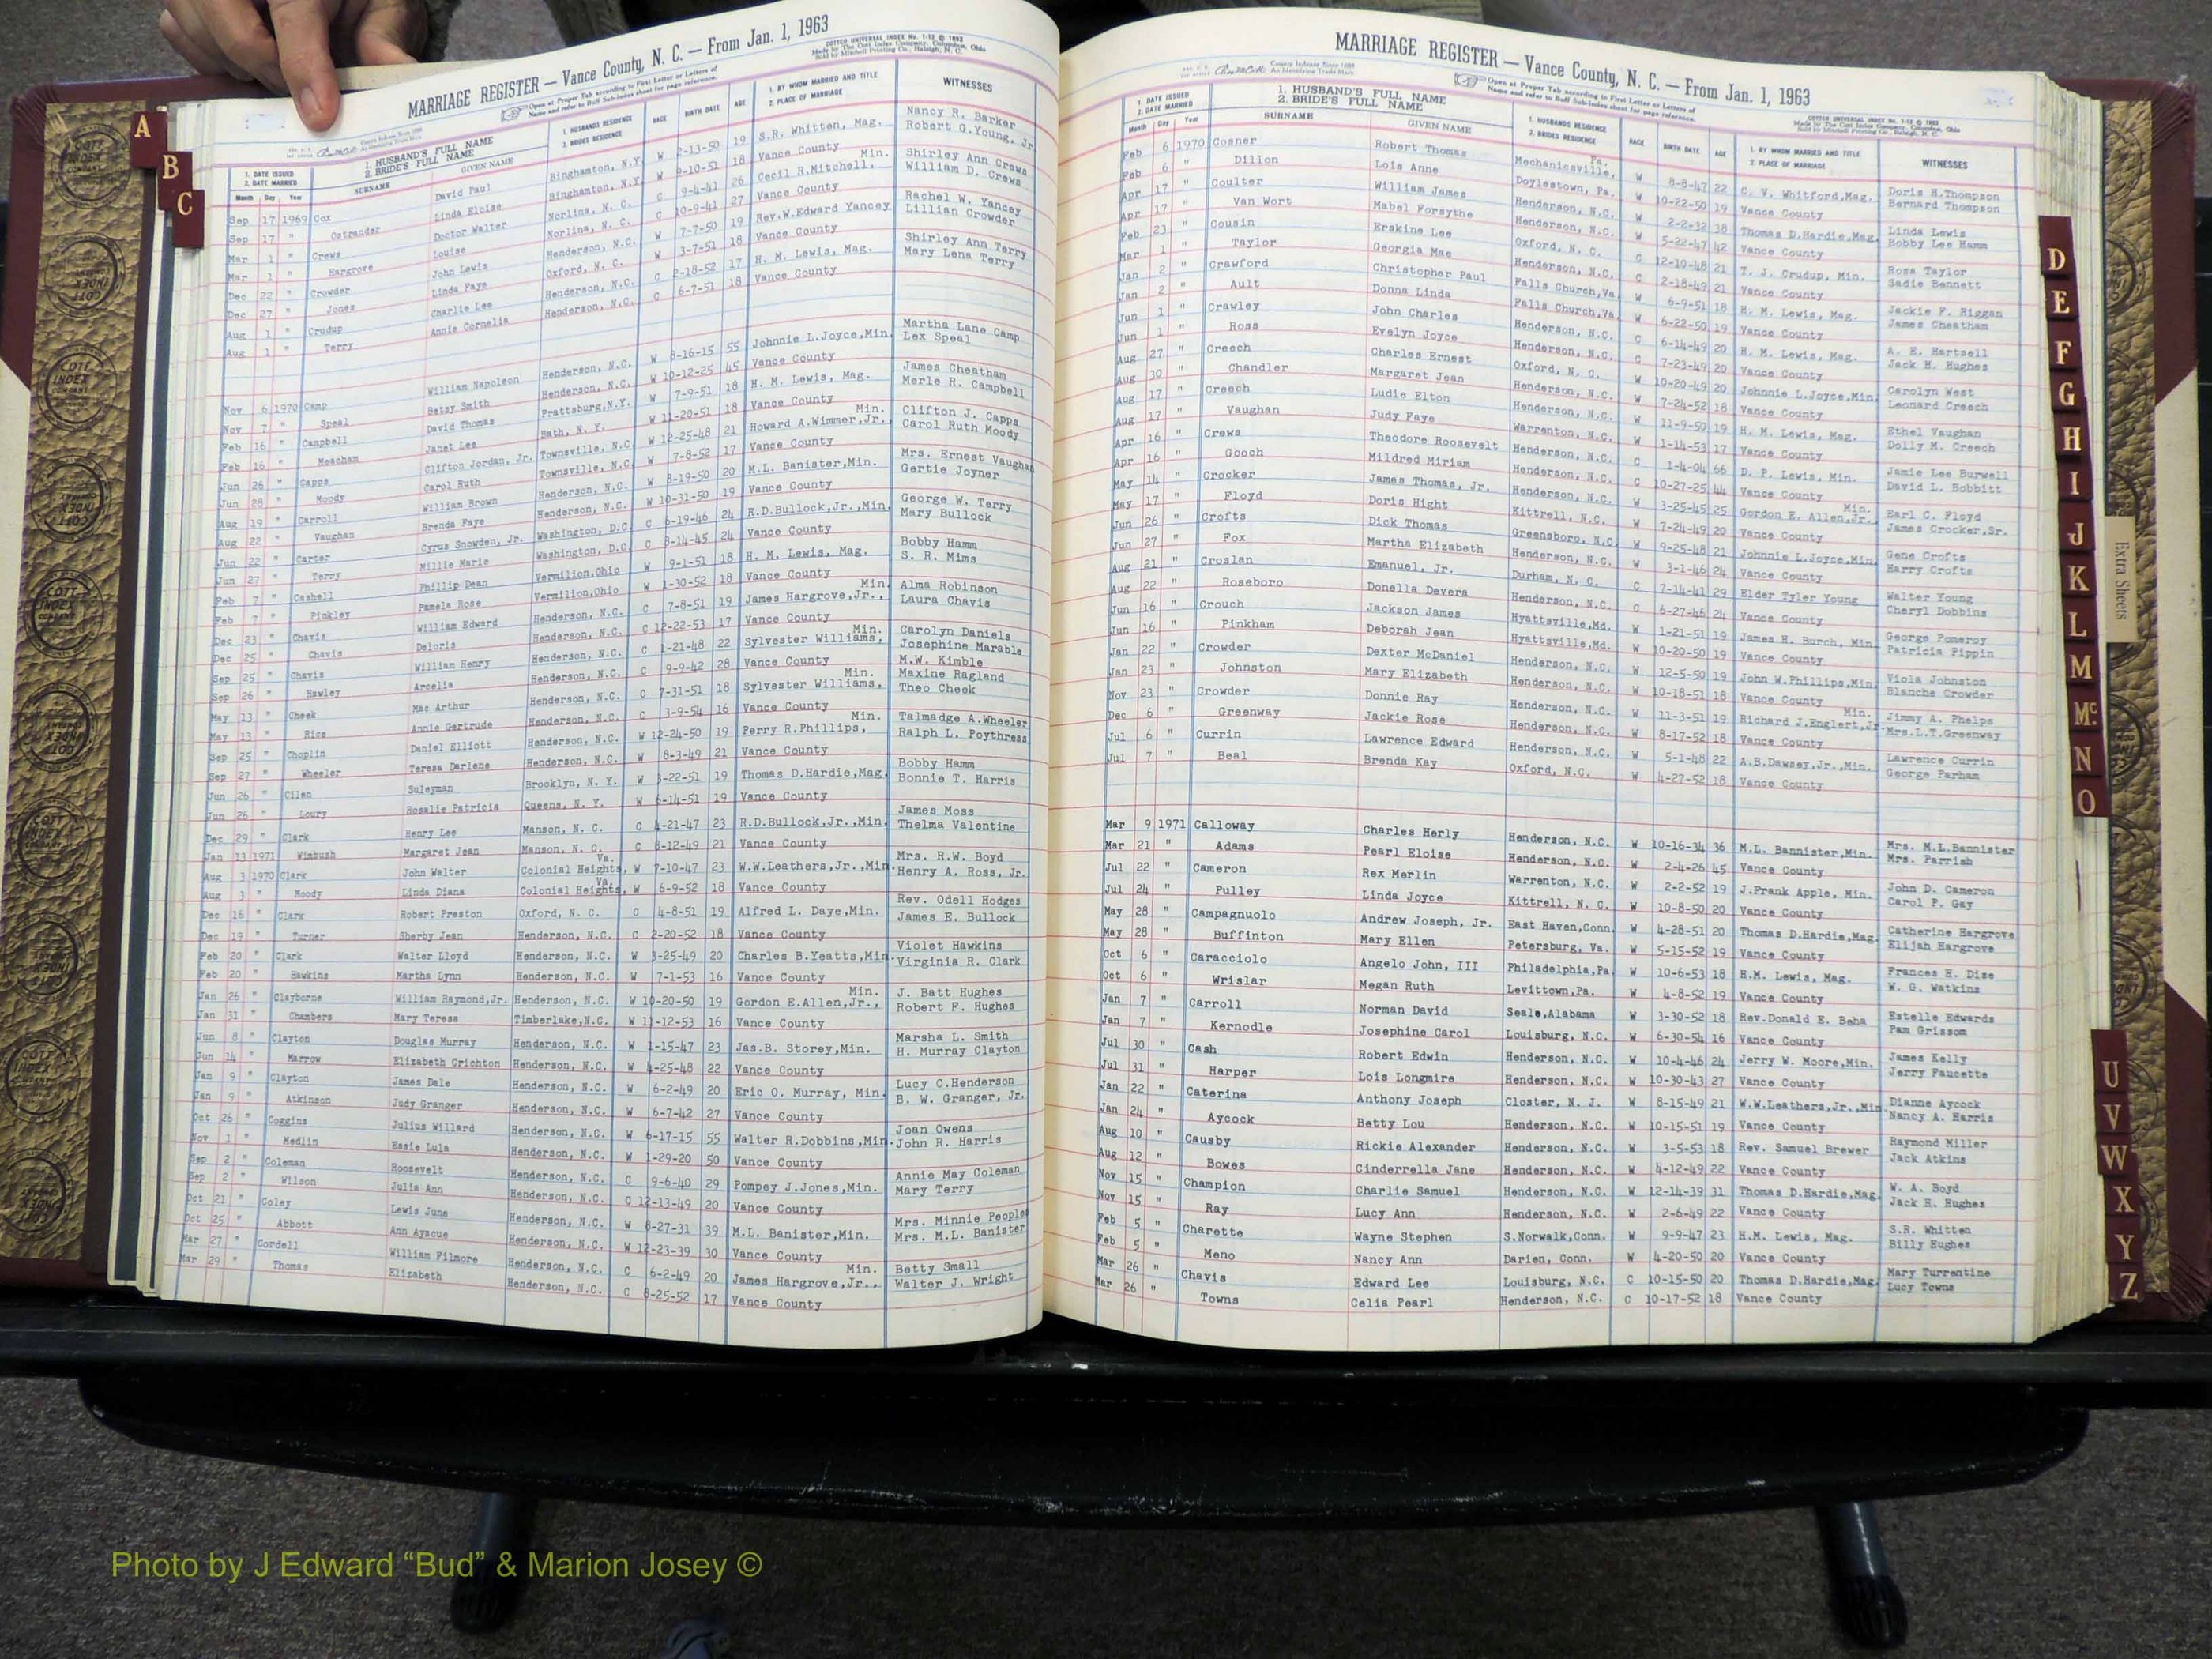 MARRIAGE REGISTER — Vance County, N. C. — From Jan. 1, 1963
COTTCO UNIVERSAL INDEX No. 1-12 © 1962
Made by The Cott Index Company, Columbus, Ohio
Sold by Mitchell Printing Co., Raleigh, N. C.
Open at Proper Tab according to First Letter or Letters of
Name and refer to Buff Sub-Index sheet for page reference.
1. DATE ISSUED 2. DATE MARRIED 1. HUSBAND'S FULL NAME 2. BRIDE'S FULL NAME 1. HUSBANDS RESIDENCE 2. BRIDES RESIDENCE RACE BIRTH DATE AGE 1. BY WHOM MARRIED AND TITLE 2. PLACE OF MARRIAGE WITNESSES
Month Day Year SURNAME GIVEN NAME
Sep 17 1969 Cox David Paul Binghamton, N.Y. W 2-13-50 19 S.R. Whitten, Mag. Nancy R. Barker
Sep 17 " Ostrander Linda Eloise Binghamton, N.Y. W 9-10-51 18 Vance County Robert G.Young, Jr
Mar 1 " Crews Doctor Walter Norlina, N. C. C 9-4-41 26 Cecil R.Mitchell, Min. Shirley Ann Crews
Mar 1 " Hargrove Louise Norlina, N. C. C 10-9-41 27 Vance County William D. Crews
Dec 22 " Crowder John Lewis Henderson, N.C. W 7-7-50 19 Rev.W.Edward Yancey Rachel W. Yancey
Dec 27 " Jones Linda Faye Oxford, N. C. W 3-7-51 18 Vance County Lillian Crowder
Aug 1 " Crudup Charlie Lee Henderson, N.C. C 2-18-52 17 H. M. Lewis, Mag. Shirley Ann Terry
Aug 1 " Terry Annie Cornelia Henderson, N.C. C 6-7-51 18 Vance County Mary Lena Terry
Nov 6 1970 Camp William Napoleon Henderson, N.C. W 8-16-15 55 Johnnie L.Joyce,Min. Martha Lane Camp
Nov 7 " Speal Betsy Smith Henderson, N.C. W 10-12-25 45 Vance County Lex Speal
Feb 16 " Campbell David Thomas Prattsburg,N.Y. W 7-9-51 18 H. M. Lewis, Mag. James Cheatham
Feb 16 " Meacham Janet Lee Bath, N. Y. W 11-20-51 18 Vance County Merle R. Campbell
Jun 26 " Capps Clifton Jordan, Jr. Townsville, N.C. W 12-25-48 21 Howard A.Wimmer,Jr., Min. Clifton J. Capps
Jun 28 " Moody Carol Ruth Townsville, N.C. W 7-8-52 17 Vance County Carol Ruth Moody
Aug 19 " Carroll William Brown Henderson, N.C. W 8-19-50 20 M.L. Banister,Min. Mrs. Ernest Vaughan
Aug 22 " Vaughan Brenda Faye Henderson, N.C. W 10-31-50 19 Vance County Gertie Joyner
Jun 22 " Carter Cyrus Snowden, Jr. Washington, D.C. C 6-19-46 24 R.D.Bullock,Jr.,Min. George W. Terry
Jun 27 " Terry Millie Marie Washington, D.C. C 8-14-45 24 Vance County Mary Bullock
Feb 7 " Cashell Phillip Dean Vermilion,Ohio W 9-1-51 18 H. M. Lewis, Mag. Bobby Hamm
Feb 7 " Pinkley Pamela Rose Vermilion,Ohio W 1-30-52 18 Vance County S. R. Mims
Dec 23 " Chavis William Edward Henderson, N.C. C 7-8-51 19 James Hargrove,Jr., Min. Alma Robinson
Dec 25 " Chavis Deloris Henderson, N.C. C 12-22-53 17 Vance County Laura Chavis
Sep 25 " Chavis William Henry Henderson, N.C. C 1-21-48 22 Sylvester Williams, Min. Carolyn Daniels
Sep 26 " Hawley Arcelia Henderson, N.C. C 9-9-42 28 Vance County Josephine Marable
M.W. Kimble
May 13 " Cheek Mac Arthur Henderson, N.C. C 7-31-51 18 Sylvester Williams, Min. Maxine Ragland
May 13 " Rice Annie Gertrude Henderson, N.C. C 3-9-54 16 Vance County Theo Cheek
Sep 25 " Choplin Daniel Elliott Henderson, N.C. W 12-24-50 19 Perry R.Phillips, Min. Talmadge A.Wheeler
Sep 27 " Wheeler Teresa Darlene Henderson, N.C. W 8-3-49 21 Vance County Ralph L. Poythress
Jun 26 " Cilen Suleyman Brooklyn, N. Y. W 3-22-51 19 Thomas D.Hardie,Mag. Bobby Hamm
Jun 26 " Loury Rosalie Patricia Queens, N. Y. W 6-14-51 19 Vance County Bonnie T. Harris
Dec 29 " Clark Henry Lee Manson, N. C. C 4-21-47 23 R.D.Bullock,Jr.,Min. James Moss
Jan 13 1971 Wimbush Margaret Jean Manson, N. C. C 8-12-49 21 Vance County Thelma Valentine
Aug 3 1970 Clark John Walter Colonial Heights, Va. W 7-10-47 23 W.W.Leathers,Jr.,Min. Mrs. R.W. Boyd
Aug 3 " Moody Linda Diana Colonial Heights, Va. W 6-9-52 18 Vance County Henry A. Ross, Jr.
Dec 16 " Clark Robert Preston Oxford, N. C. C 4-8-51 19 Alfred L. Daye,Min. Rev. Odell Hodges
Dec 19 " Turner Sherby Jean Henderson, N.C. C 2-20-52 18 Vance County James E. Bullock
Feb 20 " Clark Walter Lloyd Henderson, N.C. W 3-25-49 20 Charles B.Yeatts,Min. Violet Hawkins
Feb 20 " Hawkins Martha Lynn Henderson, N.C. W 7-1-53 16 Vance County Virginia R. Clark
Jan 26 " Clayborne William Raymond,Jr. Henderson, N.C. W 10-20-50 19 Gordon E.Allen,Jr., Min. J. Batt Hughes
Jan 31 " Chambers Mary Teresa Timberlake,N.C. W 11-12-53 16 Vance County Robert F. Hughes
Jun 8 " Clayton Douglas Murray Henderson, N.C. W 1-15-47 23 Jas.B. Storey,Min. Marsha L. Smith
Jun 14 " Marrow Elizabeth Crichton Henderson, N.C. W 4-25-48 22 Vance County H. Murray Clayton
Jan 9 " Clayton James Dale Henderson, N.C. W 6-2-49 20 Eric O. Murray, Min. Lucy C.Henderson
Jan 9 " Atkinson Judy Granger Henderson, N.C. W 6-7-42 27 Vance County B. W. Granger, Jr.
Oct 26 " Coggins Julius Willard Henderson, N.C. W 6-17-15 55 Walter R.Dobbins,Min. Joan Owens
Nov 1 " Medlin Essie Lula Henderson, N.C. W 1-29-20 50 Vance County John R. Harris
Sep 2 " Coleman Roosevelt Henderson, N.C. C 9-6-40 29 Pompey J.Jones,Min. Annie May Coleman
Sep 2 " Wilson Julia Ann Henderson, N.C. C 12-13-49 20 Vance County Mary Terry
Oct 21 " Coley Lewis June Henderson, N.C. W 8-27-31 39 M.L. Banister,Min. Mrs. Minnie Peoples
Oct 25 " Abbott Ann Ayscue Henderson, N.C. W 12-23-39 30 Vance County Mrs. M.L. Banister
Mar 27 " Cordell William Filmore Henderson, N.C. C 6-2-49 20 James Hargrove,Jr., Min. Betty Small
Mar 29 " Thomas Elizabeth Henderson, N.C. C 8-25-52 17 Vance County Walter J. Wright
MARRIAGE REGISTER — Vance County, N. C. — From Jan. 1, 1963
County Indexes Since 1888
An Identifying Trade Mark
Open at Proper Tab according to First Letter or Letters of
Name and refer to Buff Sub-Index sheet for page reference.
COTTCO UNIVERSAL INDEX No. 1-12 © 1962
Made by The Cott Index Company, Columbus, Ohio
Sold by Mitchell Printing Co., Raleigh, N. C.
1. DATE ISSUED 2. DATE MARRIED 1. HUSBAND'S FULL NAME 2. BRIDE'S FULL NAME 1. HUSBANDS RESIDENCE 2. BRIDES RESIDENCE RACE BIRTH DATE AGE 1. BY WHOM MARRIED AND TITLE 2. PLACE OF MARRIAGE WITNESSES
Month Day Year SURNAME GIVEN NAME
Feb 6 1970 Cosner Robert Thomas Mechanicsville, Pa. W 8-8-47 22 C. V. Whitford,Mag. Doris H.Thompson
Feb 6 " Dillon Lois Anne Doylestown, Pa. W 10-22-50 19 Vance County Bernard Thompson
Apr 17 " Coulter William James Henderson, N.C. W 2-2-32 38 Thomas D.Hardie,Mag. Linda Lewis
Apr 17 " Van Wort Mabel Forsythe Henderson, N.C. W 5-22-47 42 Vance County Bobby Lee Hamm
Feb 23 " Cousin Erskine Lee Oxford, N. C. C 12-10-48 21 T. J. Crudup, Min. Rosa Taylor
Mar 1 " Taylor Georgia Mae Henderson, N.C. C 2-18-49 21 Vance County Sadie Bennett
Jan 2 " Crawford Christopher Paul Falls Church,Va. W 6-9-51 18 H. M. Lewis, Mag. Jackie F. Riggan
Jan 2 " Ault Donna Linda Falls Church,Va. W 6-22-50 19 Vance County James Cheatham
Jun 1 " Crawley John Charles Henderson, N.C. C 6-14-49 20 H. M. Lewis, Mag. A. E. Hartsell
Jun 1 " Ross Evelyn Joyce Henderson, N.C. C 7-23-49 20 Vance County Jack H. Hughes
Aug 27 " Creech Charles Ernest Oxford, N. C. W 10-20-49 20 Johnnie L.Joyce,Min. Carolyn West
Aug 30 " Chandler Margaret Jean Henderson, N.C. W 7-24-52 18 Vance County Leonard Creech
Aug 17 " Creech Ludie Elton Henderson, N.C. W 11-9-50 19 H. M. Lewis, Mag. Ethel Vaughan
Aug 17 " Vaughan Judy Faye Warrenton, N.C. W 1-14-53 17 Vance County Dolly M. Creech
Apr 16 " Crews Theodore Roosevelt Henderson, N.C. C 1-4-04 66 D. P. Lewis, Min. Jamie Lee Burwell
Apr 16 " Gooch Mildred Miriam Henderson, N.C. C 10-27-25 44 Vance County David L. Bobbitt
May 14 " Crocker James Thomas, Jr. Kittrell, N.C. W 3-25-45 25 Gordon E. Allen,Jr. Min. Earl C. Floyd
May 17 " Floyd Doris Hight Kittrell, N.C. W 7-24-49 20 Vance County James Crocker,Sr.
Jun 26 " Crofts Dick Thomas Greensboro, N.C. W 9-25-48 21 Johnnie L.Joyce,Min. Gene Crofts
Jun 27 " Fox Martha Elizabeth Henderson, N.C. W 3-1-46 24 Vance County Harry Crofts
Aug 21 " Croslan Emanuel, Jr. Durham, N. C. C 7-14-41 29 Elder Tyler Young Walter Young
Aug 22 " Roseboro Donella Devera Henderson, N.C. C 6-27-46 24 Vance County Cheryl Dobbins
Jun 16 " Crouch Jackson James Hyattsville,Md. W 1-21-51 19 James H. Burch, Min. George Pomeroy
Jun 16 " Pinkham Deborah Jean Hyattsville,Md. W 10-20-50 19 Vance County Patricia Pippin
Jan 22 " Crowder Dexter McDaniel Henderson, N.C. W 12-5-50 19 John W.Phillips,Min. Viola Johnston
Jan 23 " Johnston Mary Elizabeth Henderson, N.C. W 10-18-51 18 Vance County Blanche Crowder
Nov 23 " Crowder Donnie Ray Henderson, N.C. W 11-3-51 19 Richard J.Englert,Jr. Min. Jimmy A. Phelps
Dec 6 " Greenway Jackie Rose Henderson, N.C. W 8-17-52 18 Vance County Mrs.L.T.Greenway
Jul 6 " Currin Lawrence Edward Henderson, N.C. W 5-1-48 22 A.B.Dawsey,Jr.,Min. Lawrence Currin
Jul 7 " Beal Brenda Kay Oxford, N.C. W 4-27-52 18 Vance County George Parham
Mar 9 1971 Calloway Charles Herly Henderson, N.C. W 10-16-34 36 M.L. Bannister,Min. Mrs. M.L.Bannister
Mar 21 " Adams Pearl Eloise Henderson, N.C. W 2-4-26 45 Vance County Mrs. Parrish
Jul 22 " Cameron Rex Merlin Warrenton, N.C. W 2-2-52 19 J.Frank Apple, Min. John D. Cameron
Jul 24 " Pulley Linda Joyce Kittrell, N. C. W 10-8-50 20 Vance County Carol P. Gay
May 28 " Campagnuolo Andrew Joseph, Jr. East Haven,Conn. W 4-28-51 20 Thomas D.Hardie,Mag. Catherine Hargrove
May 28 " Buffinton Mary Ellen Petersburg, Va. W 5-15-52 19 Vance County Elijah Hargrove
Oct 6 " Caracciolo Angelo John, III Philadelphia,Pa. W 10-6-53 18 H.M. Lewis, Mag. Frances H. Dise
Oct 6 " Wrislar Megan Ruth Levittown,Pa. W 4-8-52 19 Vance County W. G. Watkins
Jan 7 " Carroll Norman David Seale,Alabama W 3-30-52 18 Rev.Donald E. Beha Estelle Edwards
Jan 7 " Kernodle Josephine Carol Louisburg, N.C. W 6-30-54 16 Vance County Pam Grissom
Jul 30 " Cash Robert Edwin Henderson, N.C. W 10-4-46 24 Jerry W. Moore,Min. James Kelly
Jul 31 " Harper Lois Longmire Henderson, N.C. W 10-30-43 27 Vance County Jerry Faucette
Jan 22 " Caterina Anthony Joseph Closter, N. J. W 8-15-49 21 W.W.Leathers,Jr.,Min. Dianne Aycock
Jan 24 " Aycock Betty Lou Henderson, N.C. W 10-15-51 19 Vance County Nancy A. Harris
Aug 10 " Causby Rickie Alexander Henderson, N.C. W 3-5-53 18 Rev. Samuel Brewer Raymond Miller
Aug 12 " Bowes Cinderrella Jane Henderson, N.C. W 4-12-49 22 Vance County Jack Atkins
Nov 15 " Champion Charlie Samuel Henderson, N.C. W 12-14-39 31 Thomas D.Hardie,Mag. W. A. Boyd
Nov 15 " Ray Lucy Ann Henderson, N.C. W 2-6-49 22 Vance County Jack H. Hughes
Feb 5 " Charette Wayne Stephen S.Norwalk,Conn. W 9-9-47 23 H.M. Lewis, Mag. S.R. Whitten
Feb 5 " Meno Nancy Ann Darien, Conn. W 4-20-50 20 Vance County Billy Hughes
Mar 26 " Chavis Edward Lee Louisburg, N.C. C 10-15-50 20 Thomas D.Hardie,Mag. Mary Turrentine
Mar 26 " Towns Celia Pearl Henderson, N.C. C 10-17-52 18 Vance County Lucy Towns
A
B
C
D
E
F
G
H
I
J
K
L
M
Mc
N
O
U
V
W
X
Y
Z
Extra Sheets
COTT INDEX COMPANY
Photo by J Edward “Bud” & Marion Josey ©